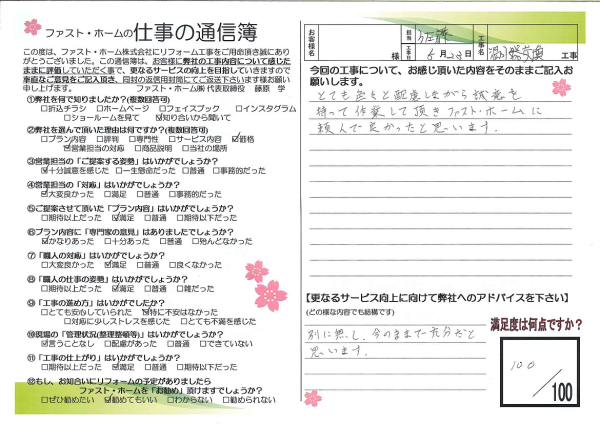 ファスト・ホームの仕事の通信簿
この度は、ファスト・ホーム株式会社にリフォーム工事をご用命頂き誠にあり
がとうございました。この通信簿は、お客様に弊社の工事内容について感じた
ままに評価していただく事で、更なるサービスの向上を目指していきますので
率直なご意見をご記入頂き、同封の返信用封筒にてご返送下さいます様お願い
申し上げます。 ファスト・ホーム㈱ 代表取締役 藤原 学
①弊社を何で知りましたか？(複数回答可)
□折込チラシ □ホームページ □フェイスブック □インスタグラム
□ショールームを見て ☑知り合いから聞いて
②弊社を選んで頂いた理由は何ですか？(複数回答可)
□プラン内容 □評判 □専門性 □サービス内容 ☑価格
☑営業担当の対応 □商品説明 □当社の場所
③営業担当の「ご提案する姿勢」はいかがでしょうか？
☑十分誠意を感じた □一生懸命だった □普通 □事務的だった
④営業担当の「対応」はいかがでしょうか？
☑大変良かった □満足 □普通 □事務的だった
⑤ご提案させて頂いた「プラン内容」はいかがでしょうか？
□期待以上だった ☑満足 □普通 □期待以下だった
⑥プラン内容に「専門家の意見」はありましたでしょうか？
☑かなりあった □十分あった □普通 □殆んどなかった
⑦「職人の対応」はいかがでしょうか？
□大変良かった ☑満足 □普通 □良くなかった
⑧「職人の仕事の姿勢」はいかがでしたか？
□期待以上だった ☑満足 □普通 □雑だった
⑨「工事の進め方」はいかがでしたか？
□とても安心していられた ☑特に不安はなかった
□対応に少しストレスを感じた □とても不満を感じた
⑩現場の「管理状況(整理整頓等)」はいかがでしょうか？
☑言うことなし □配慮があった □普通 □できていない
⑪「工事の仕上がり」はいかがでしょうか？
□期待以上だった ☑満足 □普通 □期待以下だった
⑫もし、お知合いにリフォームの予定がありましたら
ファスト・ホームを「お勧め」頂けますでしょうか？
□ぜひ勧めたい ☑勧めてもいい □わからない □勧められない
お客様名 様 担当 佐藤 工事日 5月23日 工事名 湯沸器交換 工事
今回の工事について、お感じ頂いた内容をそのままご記入お
願いします。
配慮しながら誠意を
持って作業して頂きファスト・ホームに
頼んで良かったと思います.
【更なるサービス向上に向けて弊社へのアドバイスを下さい】
(どの様な内容でも結構です)
別に無し、今のままで充分だと
思います.
満足度は何点ですか？
100/100